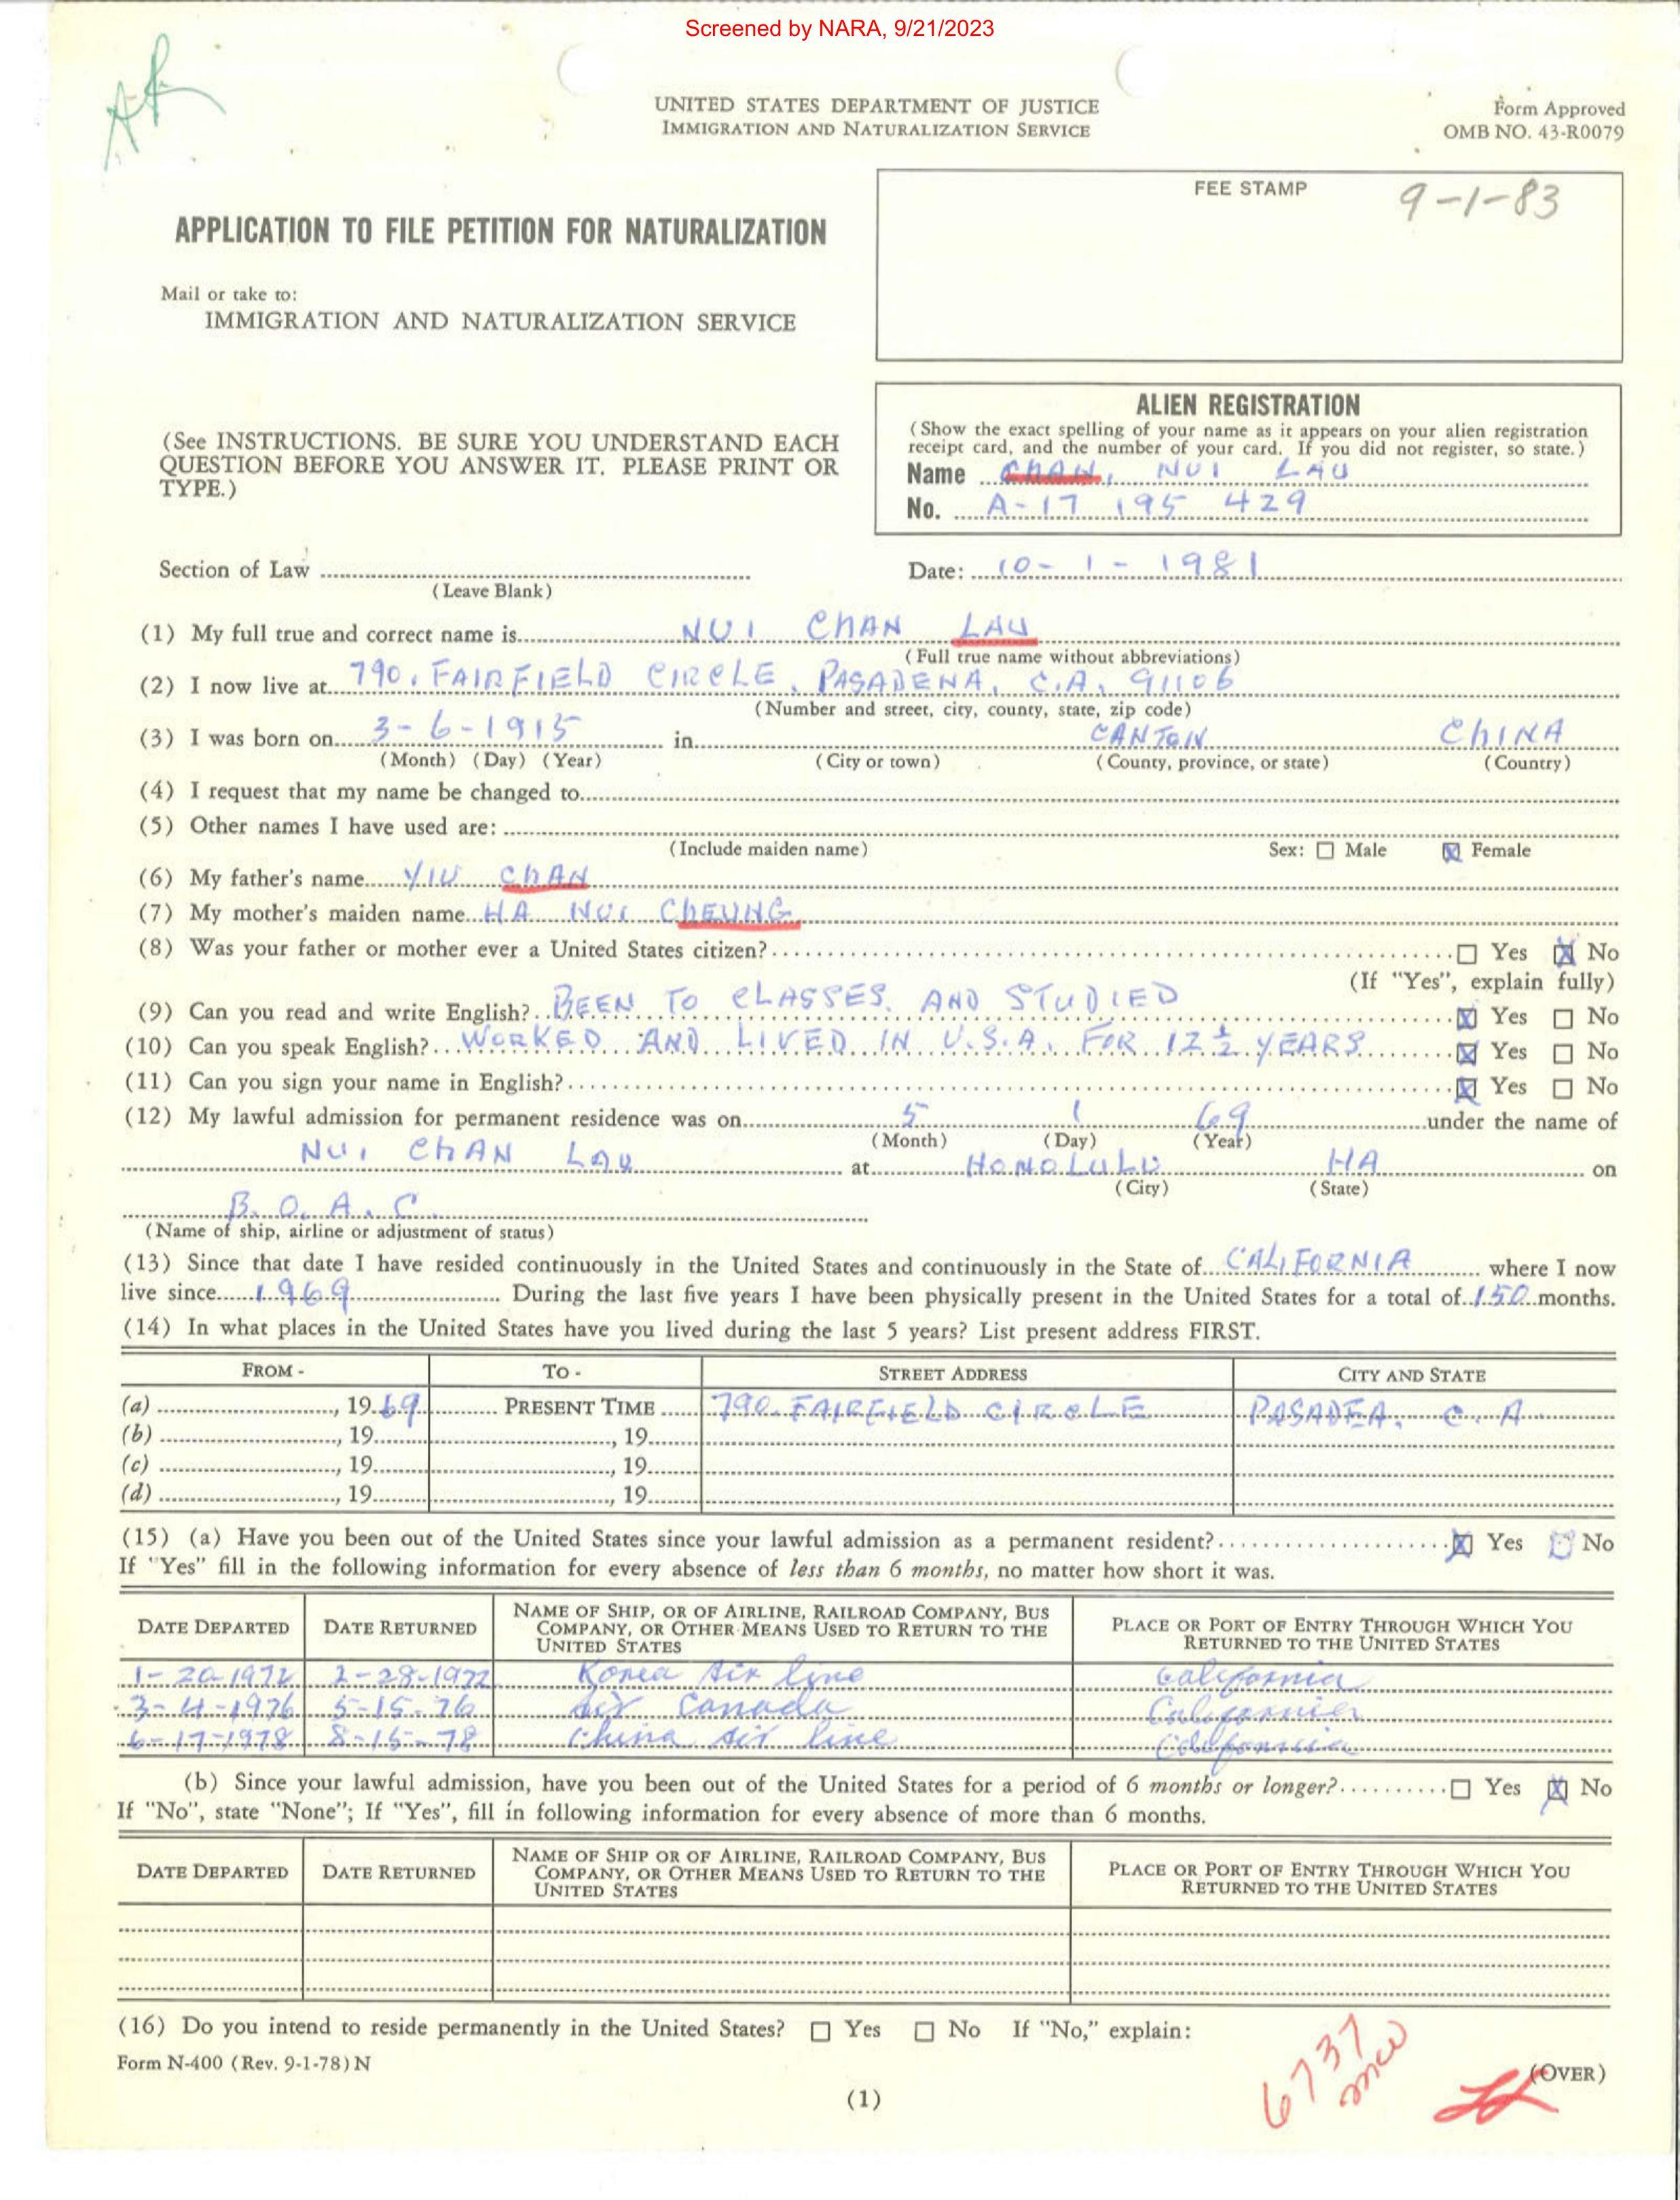 Screened by NARA, 9/21/2023
UNITED STATES DEPARTMENT OF JUSTICE
IMMIGRATION AND NATURALIZATION SERVICE
Form Approved
OMB NO. 43-R0079
FEE STAMP
9-1-83
APPLICATION TO FILE PETITION FOR NATURALIZATION
Mail or take to:
IMMIGRATION AND NATURALIZATION SERVICE
(See INSTRUCTIONS. BE SURE YOU UNDERSTAND EACH
QUESTION BEFORE YOU ANSWER IT. PLEASE PRINT OR
TYPE.)
ALIEN REGISTRATION
(Show the exact spelling of your name as it appears on your alien registration
receipt card, and the number of your card. If you did not register, so state.)
Name CHAN, NUI LAU
No. A-17 195 429
Section of Law
(Leave Blank)
Date: 10-1-1981
(1) My full true and correct name is NUI CHAN LAU
(Full true name without abbreviations)
(2) I now live at 790, FAIRFIELD CIRCLE, PASADENA, C.A. 91106
(Number and street, city, county, state, zip code)
(3) I was born on 3-6-1915 in CANTON CHINA
(Month) (Day) (Year) (City or town) (County, province, or state) (Country)
(4) I request that my name be changed to
(5) Other names I have used are:
(Include maiden name) Sex: ☐ Male ☒ Female
(6) My father's name YIU CHAN
(7) My mother's maiden name HA NUI CHEUNG
(8) Was your father or mother ever a United States citizen? ☐ Yes ☒ No
(If "Yes", explain fully)
(9) Can you read and write English? BEEN TO CLASSES. AND STUDIED ☒ Yes ☐ No
(10) Can you speak English? WORKED AND LIVED IN U.S.A. FOR 12 ½ YEARS ☒ Yes ☐ No
(11) Can you sign your name in English? ☒ Yes ☐ No
(12) My lawful admission for permanent residence was on 5 1 69 under the name of
(Month) (Day) (Year)
NUI CHAN LAU at HONOLULU HA on
(City) (State)
B.O.A.C.
(Name of ship, airline or adjustment of status)
(13) Since that date I have resided continuously in the United States and continuously in the State of CALIFORNIA where I now
live since 1969 During the last five years I have been physically present in the United States for a total of 150 months.
(14) In what places in the United States have you lived during the last 5 years? List present address FIRST.
FROM - TO - STREET ADDRESS CITY AND STATE
(a) , 19 69 PRESENT TIME 790. FAIRFIELD CIRCLE PASADEA, C.A.
(b) , 19 , 19
(c) , 19 , 19
(d) , 19 , 19
(15) (a) Have you been out of the United States since your lawful admission as a permanent resident? ☒ Yes ☐ No
If "Yes" fill in the following information for every absence of less than 6 months, no matter how short it was.
DATE DEPARTED DATE RETURNED NAME OF SHIP, OR OF AIRLINE, RAILROAD COMPANY, BUS COMPANY, OR OTHER MEANS USED TO RETURN TO THE UNITED STATES PLACE OR PORT OF ENTRY THROUGH WHICH YOU RETURNED TO THE UNITED STATES
1-20-1972 2-28-1972 Korea Air line California
3-4-1976 5-15-76 Air Canada California
6-17-1978 8-15-78 China Air line California
(b) Since your lawful admission, have you been out of the United States for a period of 6 months or longer? ☐ Yes ☒ No
If "No", state "None"; If "Yes", fill in following information for every absence of more than 6 months.
DATE DEPARTED DATE RETURNED NAME OF SHIP OR OF AIRLINE, RAILROAD COMPANY, BUS COMPANY, OR OTHER MEANS USED TO RETURN TO THE UNITED STATES PLACE OR PORT OF ENTRY THROUGH WHICH YOU RETURNED TO THE UNITED STATES
(16) Do you intend to reside permanently in the United States? ☐ Yes ☐ No If "No," explain:
Form N-400 (Rev. 9-1-78) N
6737
(OVER)
(1)